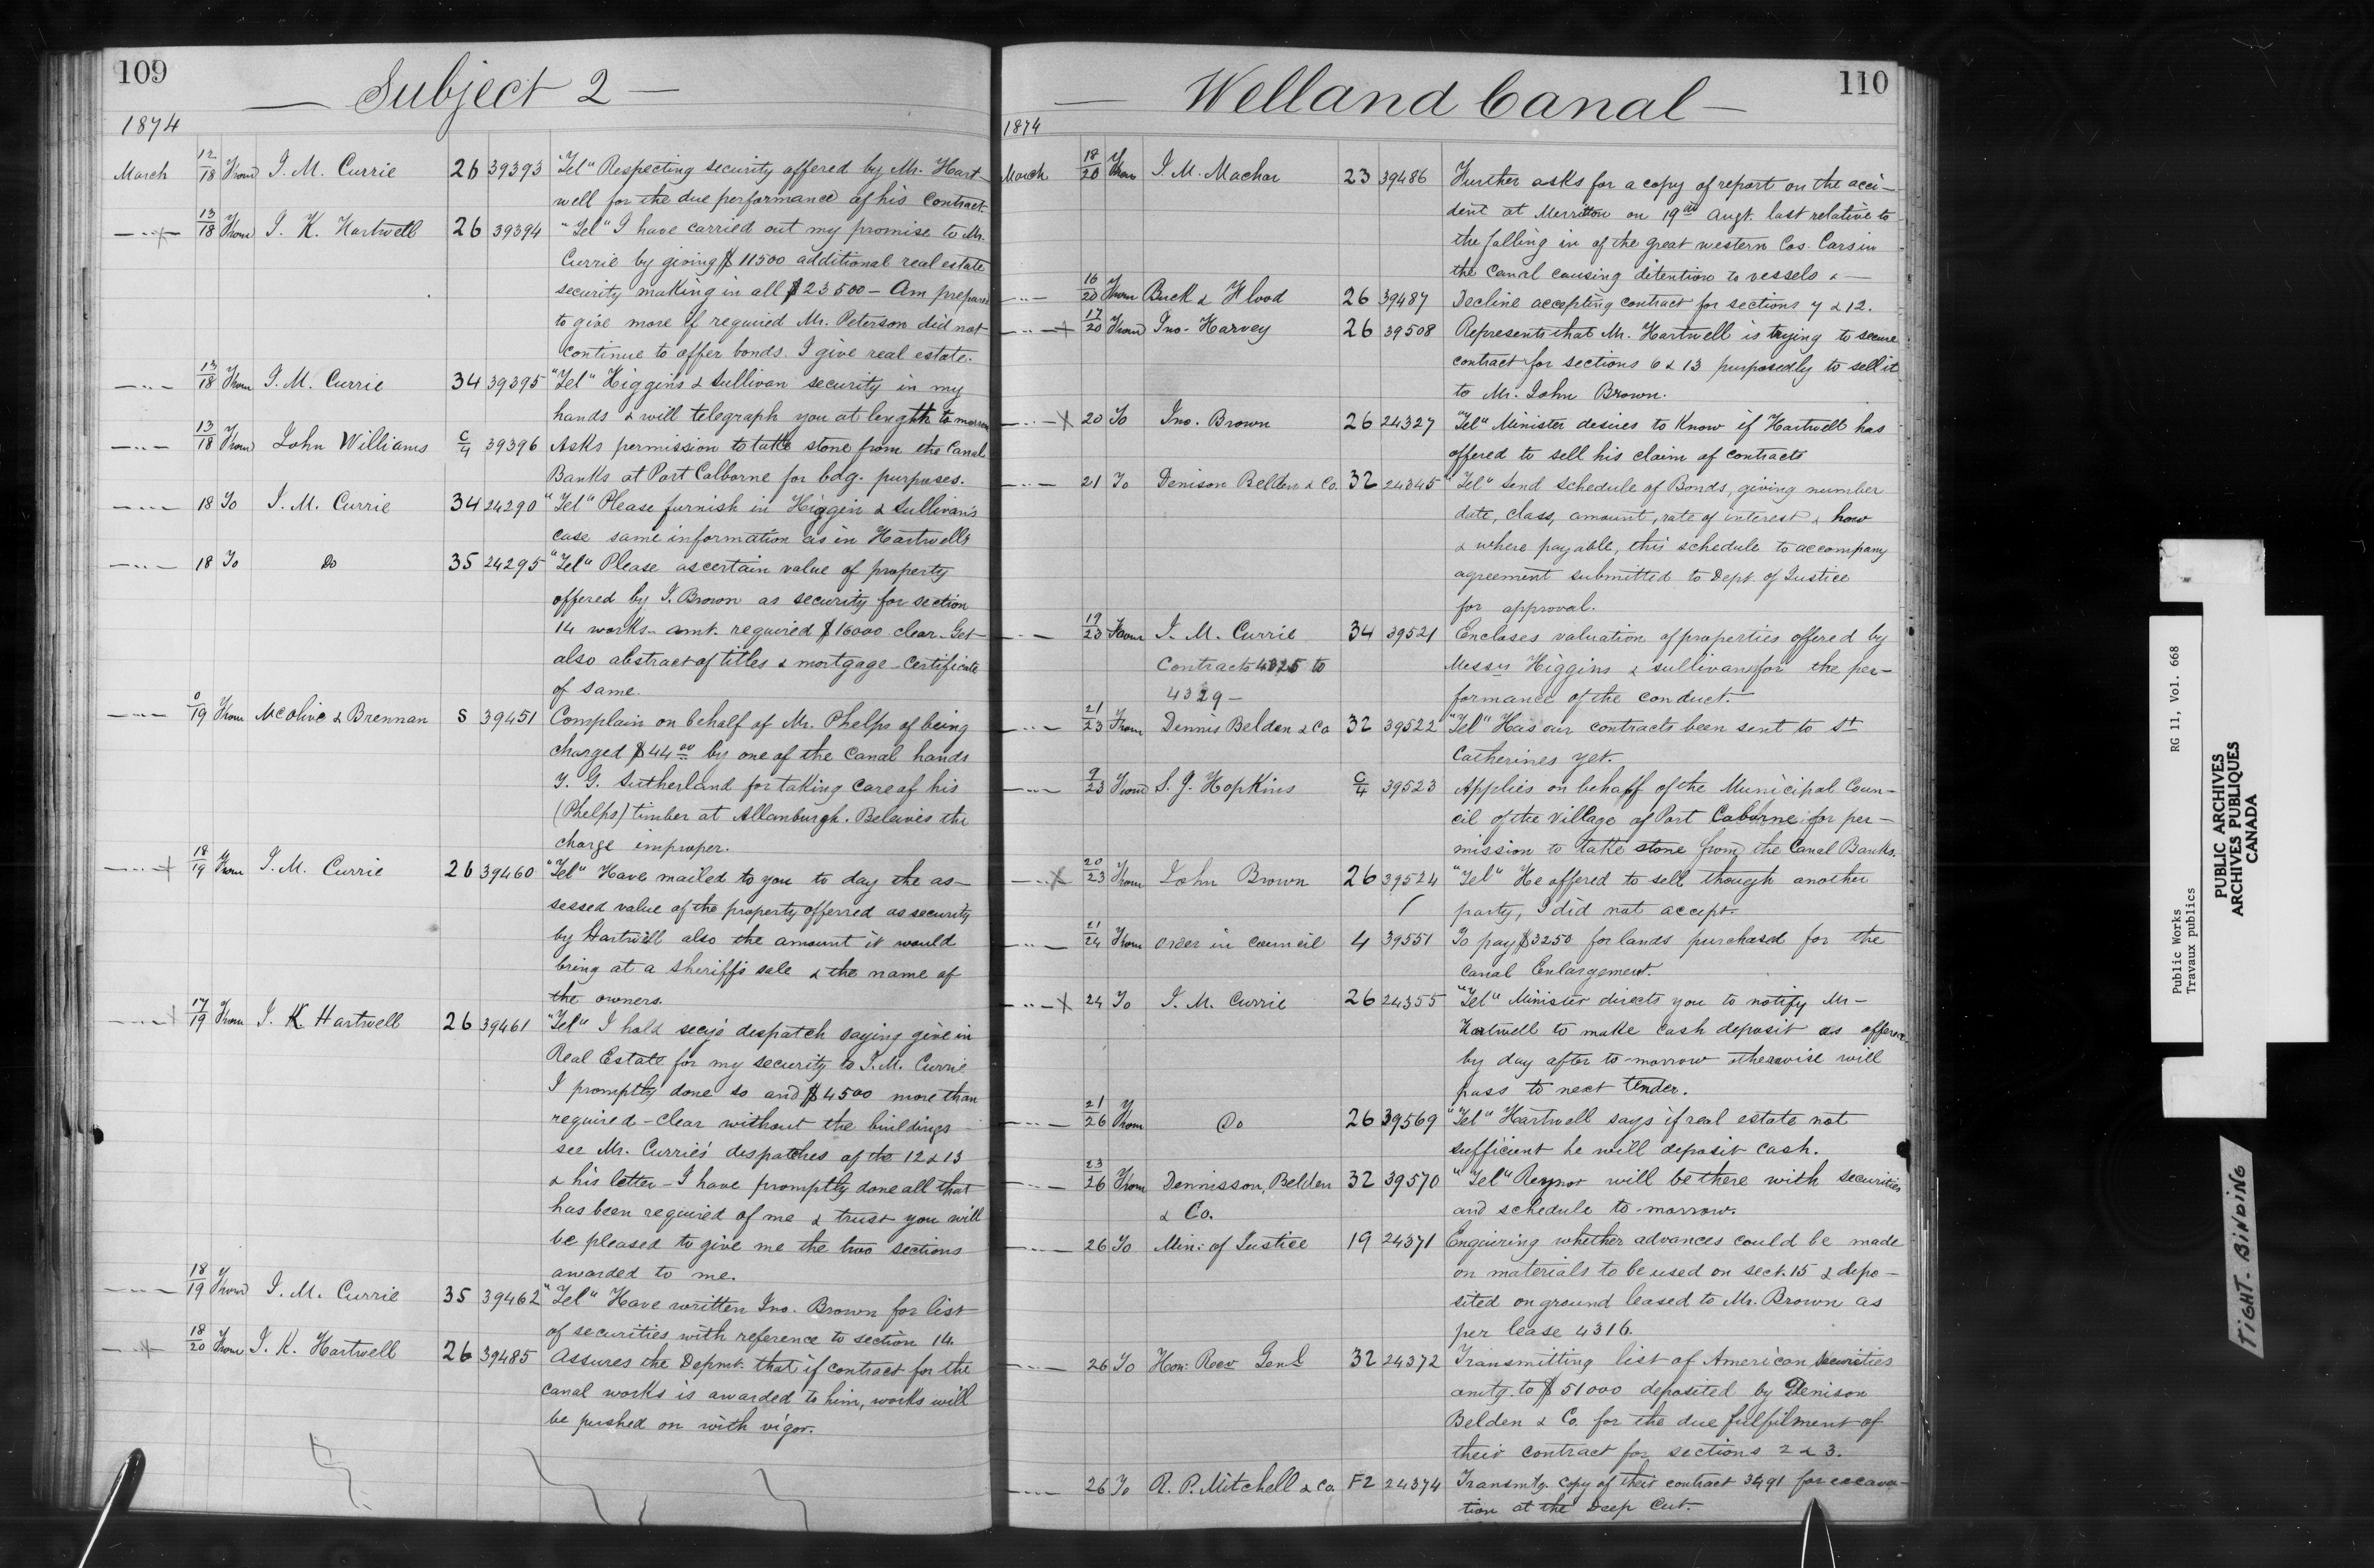 109
Subject 2
1874
March 12/18 From J. M. Currie 26 39393 "Tel" Respecting security offered by Mr. Hart-
well for the due performance of his Contract.
13/18 From J. K. Hartwell 26 39394 "Tel" I have carried out my promise to Mr.
Currie by giving $11500 additional real estate
security making in all $23500 - Am prepared
to give more if required Mr. Peterson did not
continue to offer bonds. I give real estate.
13/18 From J. M. Currie 34 39395 "Tel" Higgins & Sullivan security in my
hands & will telegraph you at length to morrow
13/18 From John Williams C/4 39396 Asks permission to take stone from the Canal
Banks at Port Colborne for bdg. purposes.
18 To J. M. Currie 34 24290 "Tel" Please furnish in Higgin & Sullivan's
case same information as in Hartwells
18 To Do 35 24295 "Tel" Please ascertain value of property
offered by J. Brown as security for section
14 works - amt. required $16000 clear - Get
also abstract of titles & mortgage - certificate
of same.
19 From McOlive & Brennan S 39451 Complain on behalf of Mr. Phelps of being
charged $44.00 by one of the Canal hands
Y. G. Sutherland for taking care of his
(Phelps) timber at Allanburgh. Beleives the
charge improper.
18/19 From J. M. Currie 26 39460 "Tel" Have mailed to you to day the as-
sessed value of the property offerred as security
by Hartwell also the amount it would
bring at a sheriffs sale & the name of
the owners.
17/19 From J. K. Hartwell 26 39461 "Tel" I hold secy's despatch saying give in
Real Estate for my security to J. M. Currie
I promptly done so and $4500 more than
required - clear without the buildings
see Mr. Currie's despatches of the 12 & 13
& his letter - I have promptly done all that
has been required of me & trust you will
be pleased to give me the two sections
awarded to me.
18/19 From J. M. Currie 35 39462 "Tel" Have written Jno. Brown for list
of securities with reference to section 14.
18/20 From J. K. Hartwell 26 39485 Assures the Depmt. that if contract for the
canal works is awarded to him, works will
be pushed on with vigor.
110
Welland Canal
1874
March 18/20 From J. M. Machar 23 39486 Further asks for a copy of report on the acci-
dent at Merritton on 19th Augt. last relative to
the falling in of the great western Cos. Cars in
the Canal causing detention to vessels &
16/20 From Buck & Flood 26 39487 Decline accepting contract for sections 7 & 12.
17/20 From Jno. Harvey 26 39508 Represents that Mr. Hartwell is trying to secure
contract for sections 6 & 13 purposedly to sell it
to Mr. John Brown.
20 To Jno. Brown 26 24327 "Tel" Minister desires to Know if Hartwell has
offered to sell his claim of contracts
21 To Denison Belden & Co. 32 24345 "Tel" Send schedule of Bonds, giving number
date, class, amount, rate of interest & how
& where payable, this schedule to accompany
agreement submitted to Dept. of Justice
for approval.
19/23 From J. M. Currie 34 39521 Encloses valuation of properties offered by
Contracts 4325 to Messrs Higgins & Sullivan for the per-
4329 - formance of the conduct.
21/23 From Dennis Belden & Co 32 39522 "Tel" Has our contracts been sent to St
Catherines yet.
9/23 From S. J. Hopkins C/4 39523 Applies on behalf of the Municipal Coun-
cil of the Village of Port Coborne for per-
mission to take stone from the Canal Banks.
20/23 From John Brown 26 39524 "Tel" He offered to sell though another
party, I did not accept.
21/24 From Order in Council 4 39551 To pay $3250 for lands purchased for the
Canal Enlargement.
24 To J. M. Currie 26 24355 "Tel" Minister directs you to notify Mr-
Hartwell to make cash deposit as offered
by day after to-morrow otherwise will
pass to next tender.
21/26 From Do 26 39569 "Tel" Hartwell says if real estate not
sufficient he will deposit cash.
23/26 From Dennisson, Belden 32 39570 "Tel" Reynor will be there with securities
& Co. and schedule to-morrow.
26 To Min: of Justice 19 24371 Enquiring whether advances could be made
on materials to be used on sect. 15 & depo-
sited on ground leased to Mr. Brown as
per lease 4316.
26 To Hon: Recr Genl 32 24372 Transmitting list of American securities
amtg. to $51000 deposited by Denison
Belden & Co. for the due fulfilment of
their contract for sections 2 & 3.
26 To R. P. Mitchell & Co. F2 24374 Transmtg. copy of their contract 3491 for excava-
tion at the Deep Cut.
Public Works RG 11, Vol. 668
Travaux publics
PUBLIC ARCHIVES
ARCHIVES PUBLIQUES
CANADA
TIGHT. BINDING